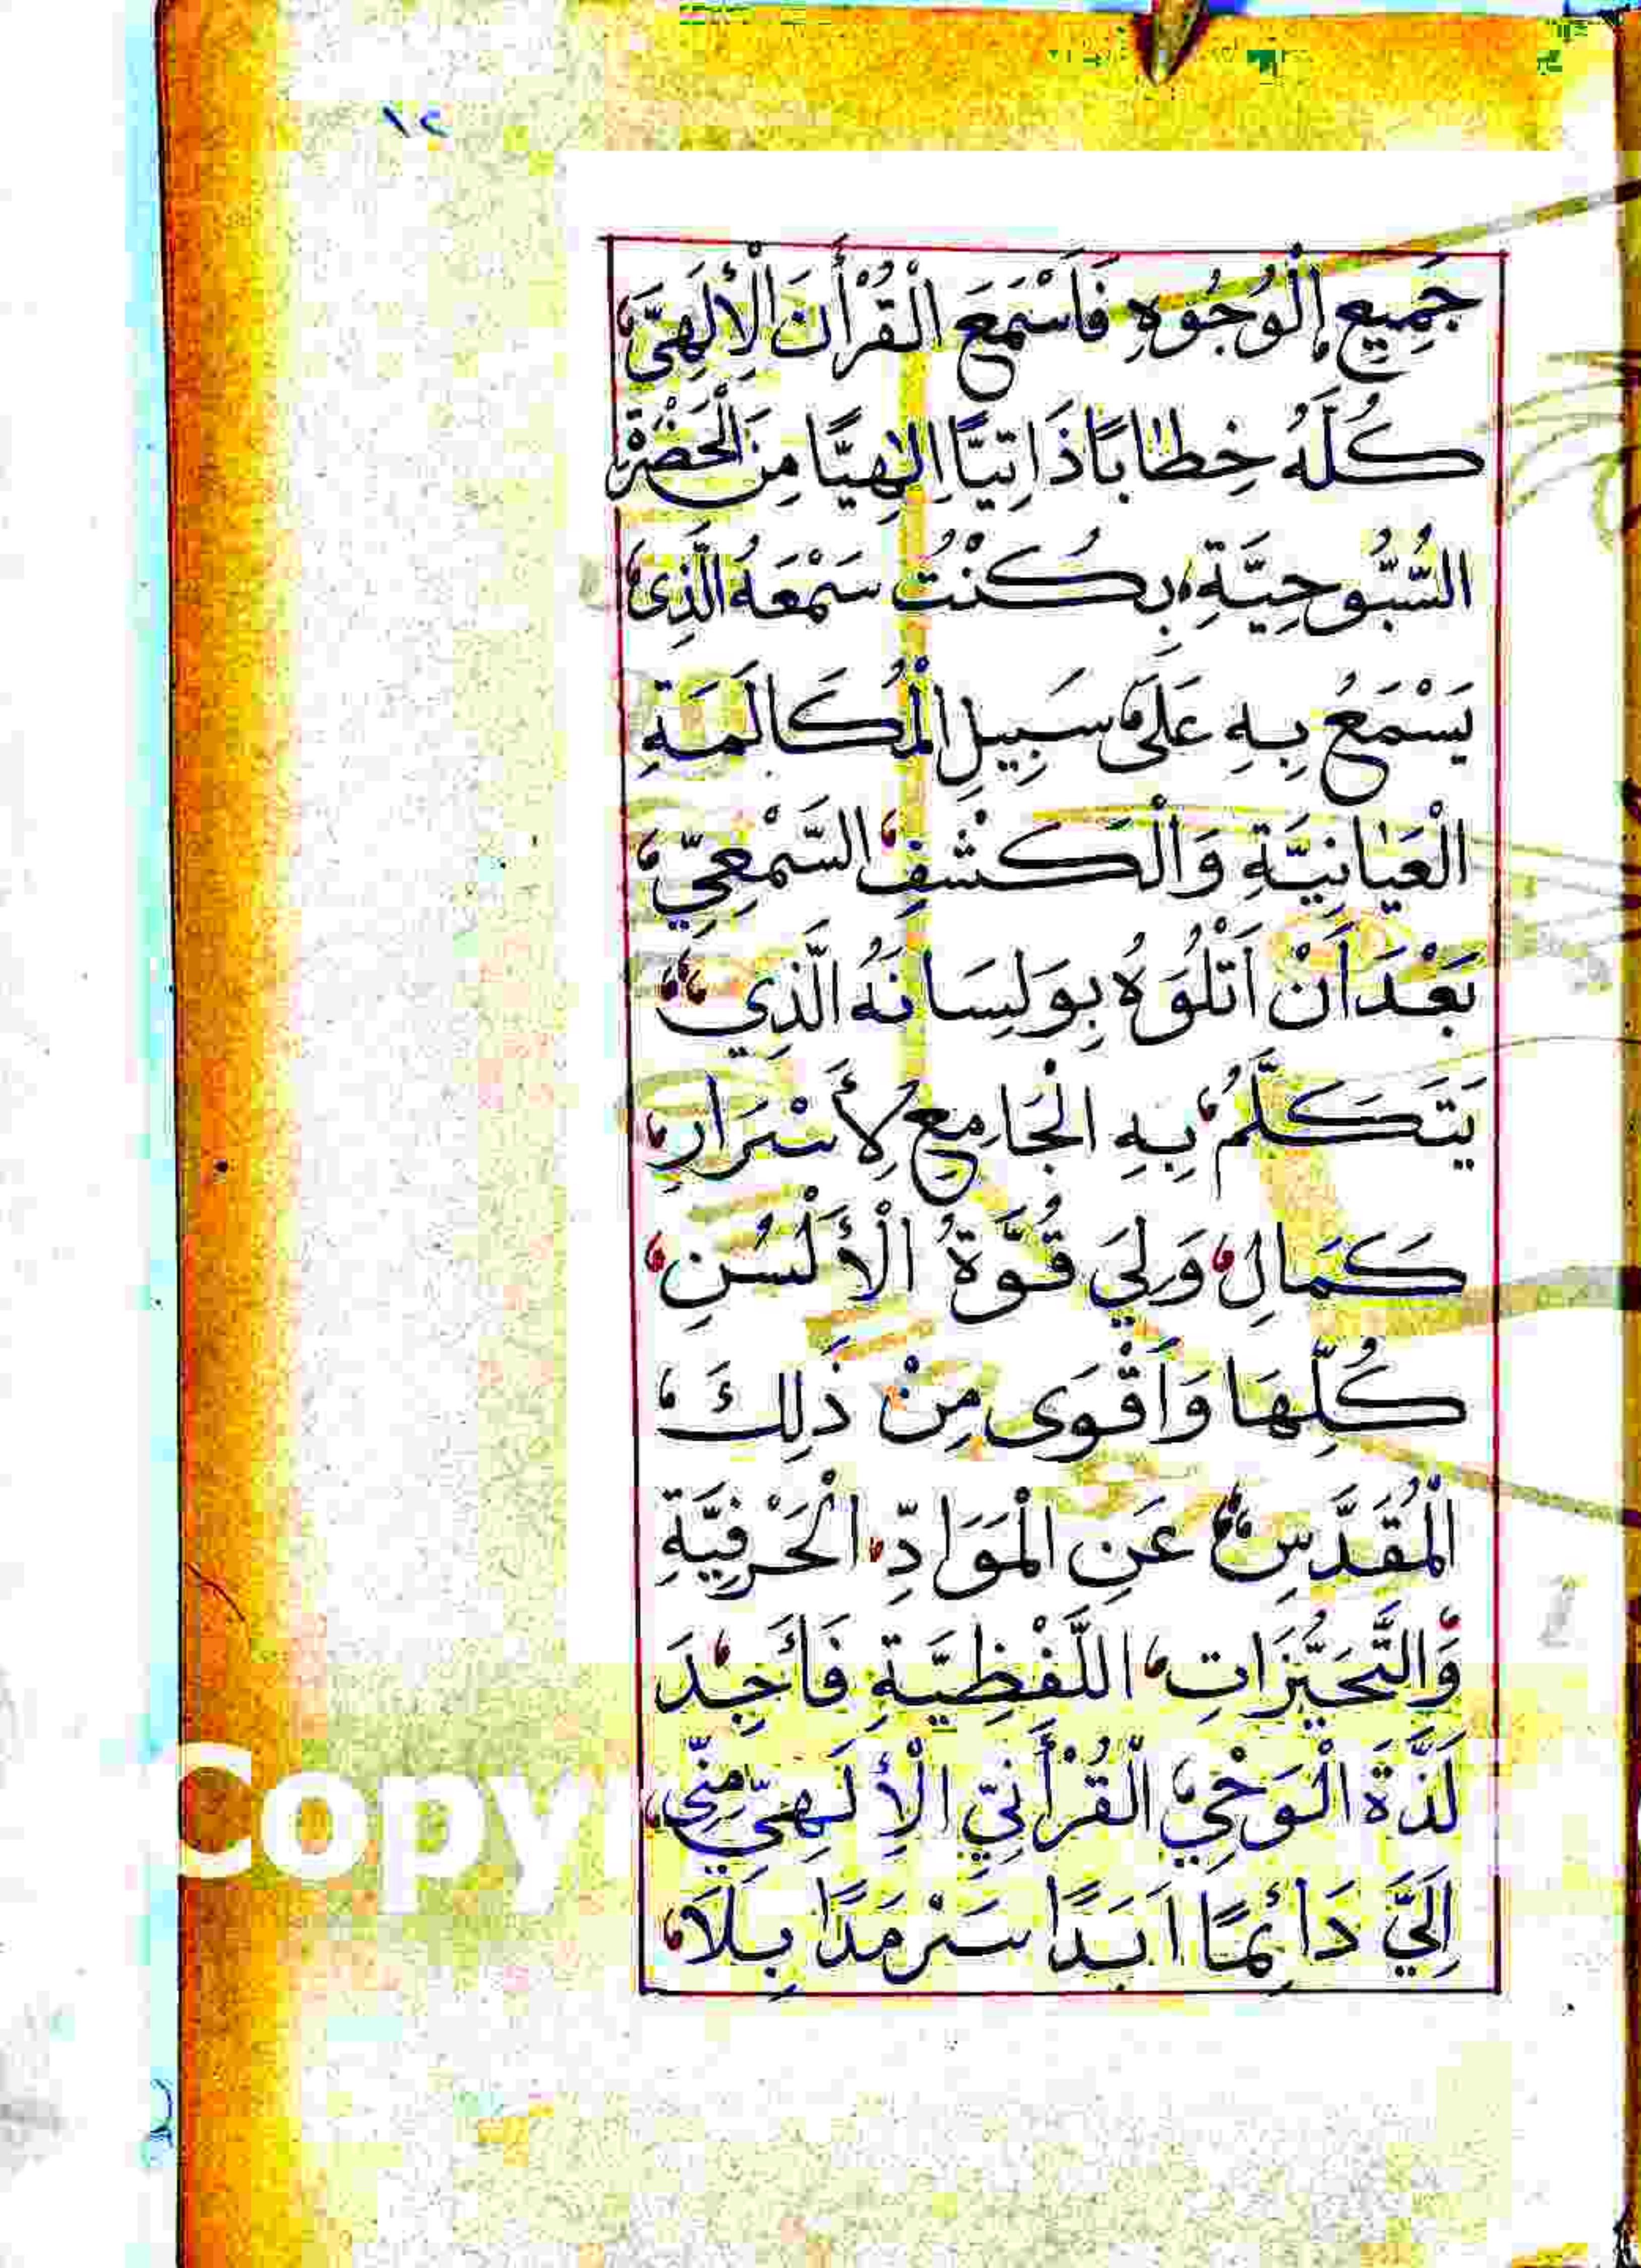 ١٢
جَمِيعِ الْوُجُوهِ فَاَسْمَعَ الْقُرْأَنَ الْإِلَهِيَّ
كُلَّهُ خِطَابًا ذَاتِيًّا اِلٰهِيًّا مِنَ الْحَضْرَةِ
السُّبُّوحِيَّةِ بِكُنْتُ سَمْعَهُ الَّذِى
يَسْمَعُ بِهِ عَلَى سَبِيلِ الْمُكَالَمَةِ
الْعَيَانِيَّةِ وَالْكَشْفِ السَّمْعِيِّ
بَعْدَ اَنْ اَتْلُوَهُ بِوَلِسَانَهُ الَّذِي
يَتَكَلَّمُ بِهِ الْجَامِعِ لِأَسْرَارِ
كَمَالِ وَلِيَ قُوَّةُ الْأَلْسُنِ
كُلِّهَا وَاَقْوَى مِنْ ذَلِكَ
الْمُقَدَّسِ عَنِ الْمَوَادِّ الْحَرْفِيَّةِ
وَالتَّحَيُّزَاتِ اللَّفْظِيَّةِ فَأَجِدَ
لَذَّةَ الْوَحْيِ الْقُرْأَنِيِّ الْإِلَهِيِّ مِنِّى
اِلَيَّ دَائِمًا اَبَدًا سَرْمَدًا بِلَا
Copy